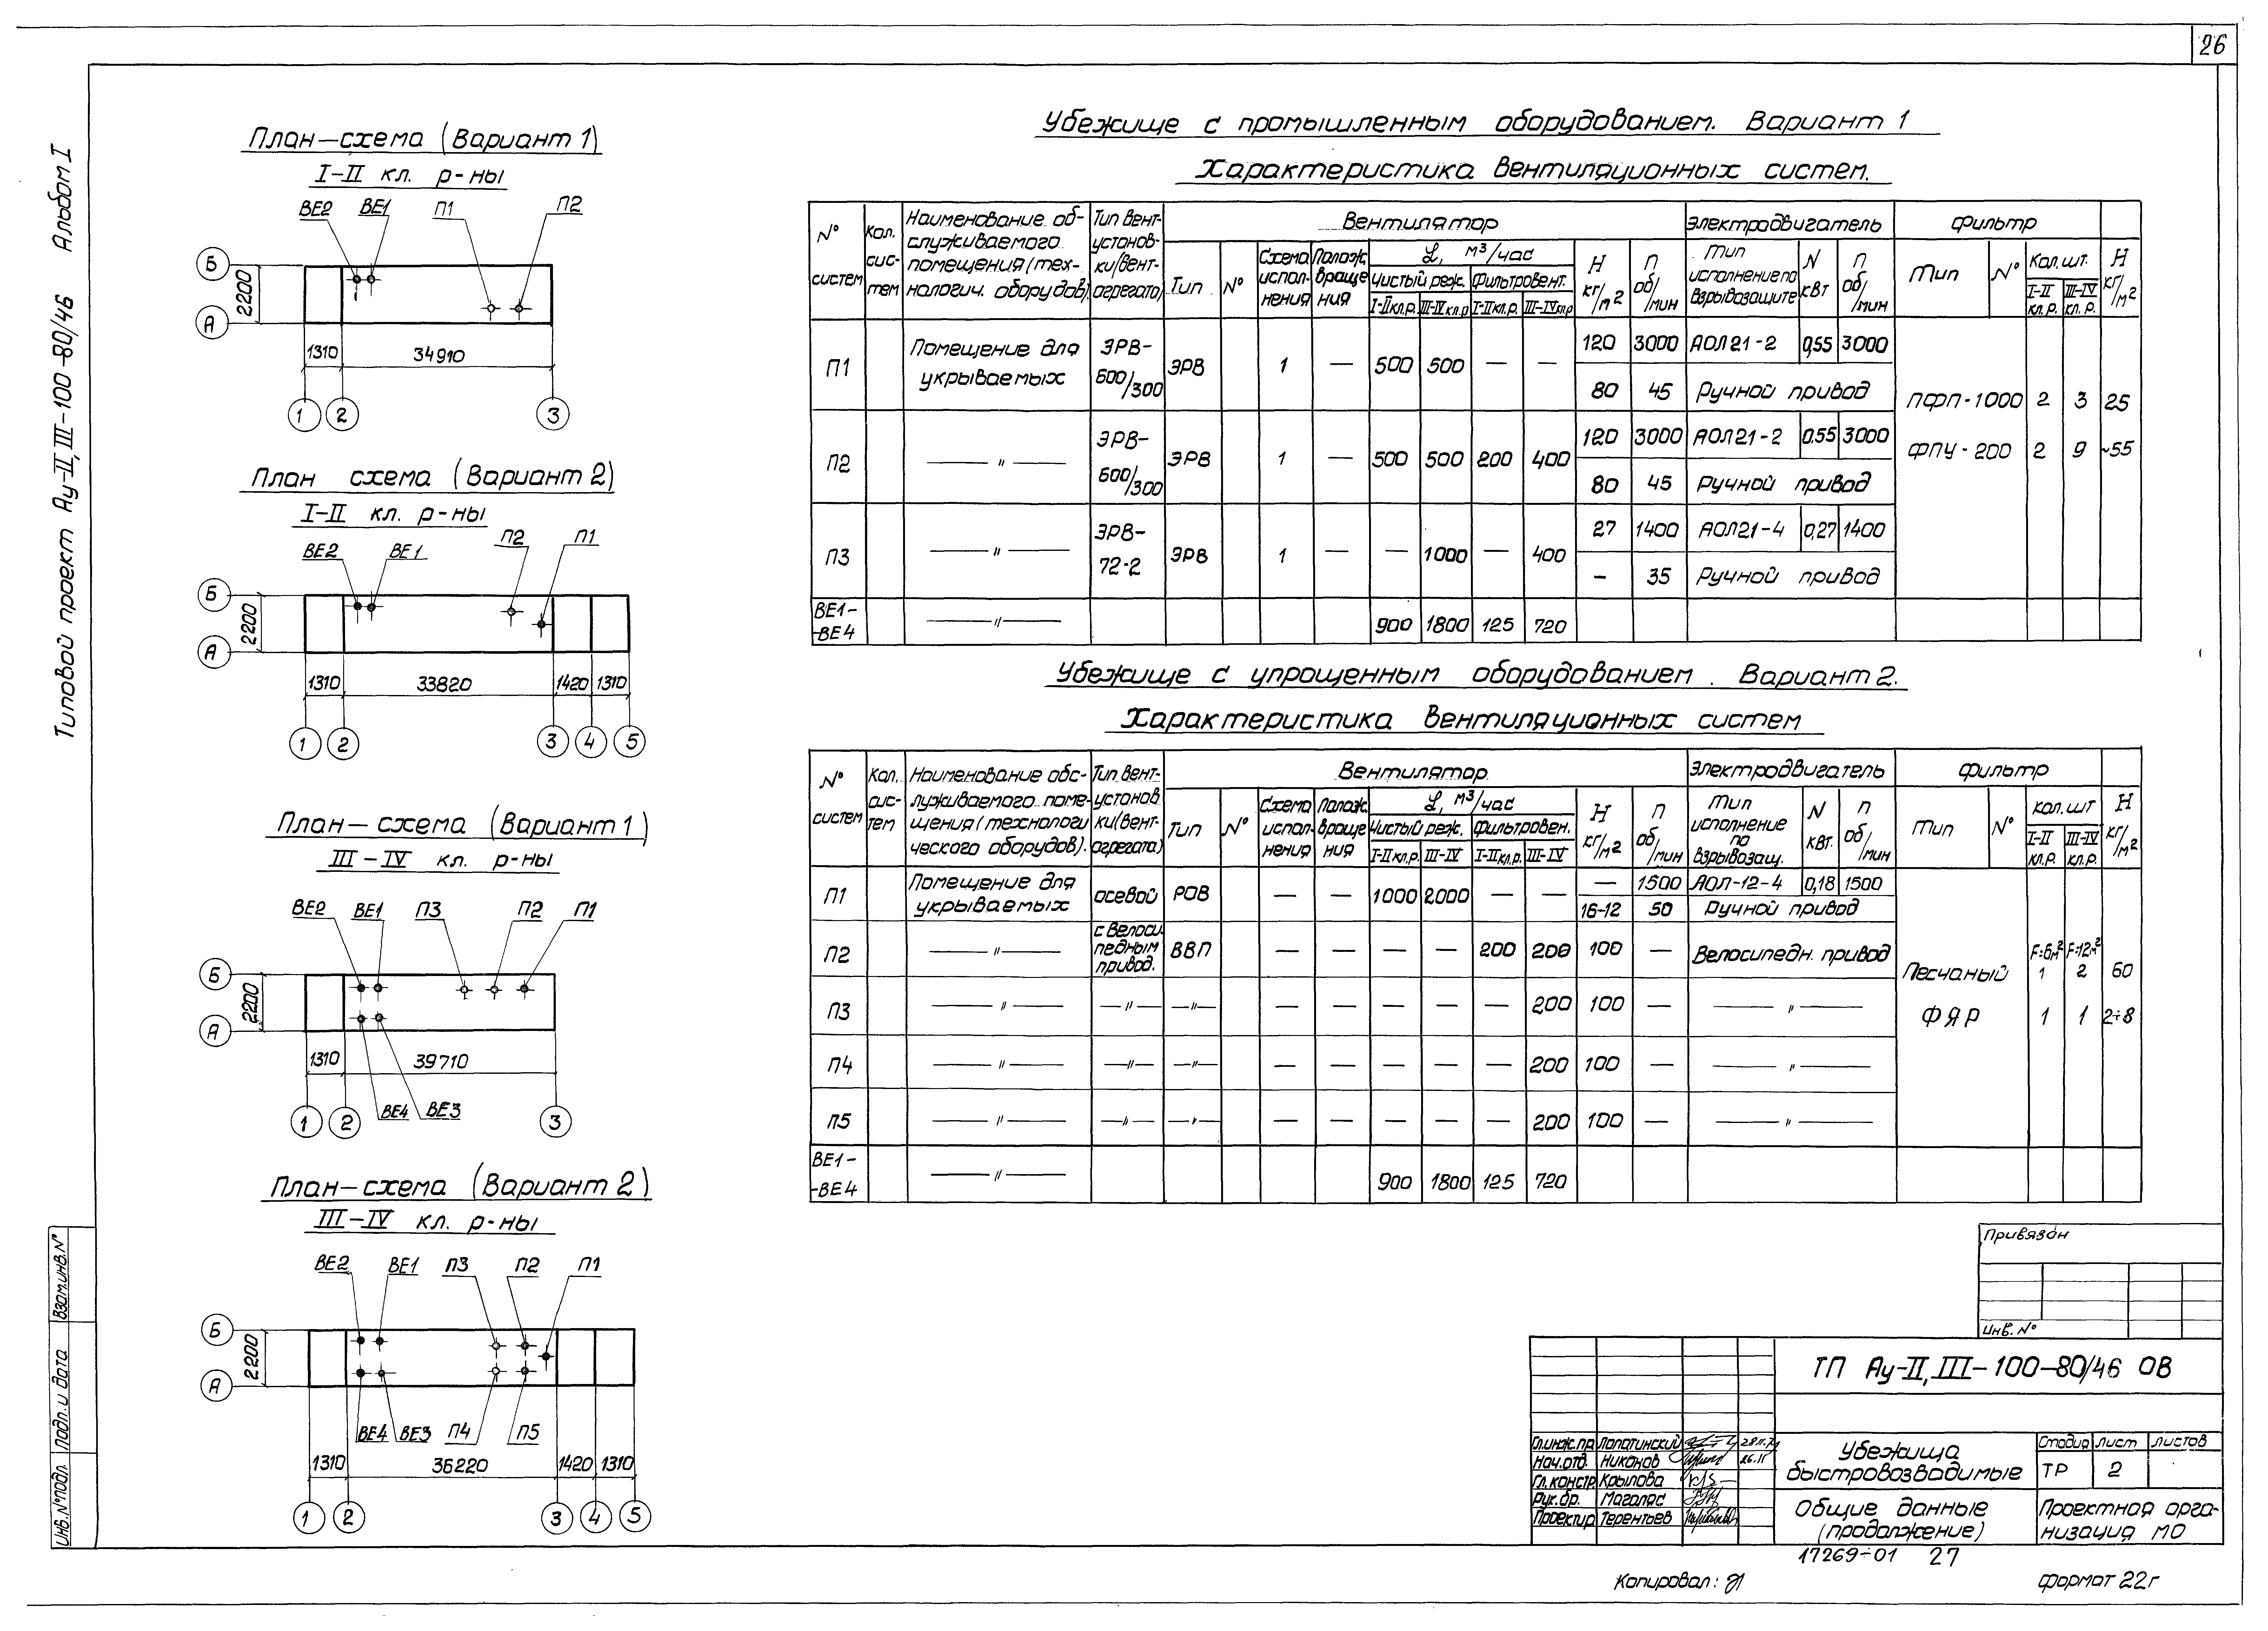 26
Типовой проект Ау-II,III-100-80/46 Альбом I
План-схема (Вариант 1)
I-II кл. р-ны
ВЕ2 ВЕ1 П1 П2
Б
2200
А
1310 34910
1 2 3
План схема (Вариант 2)
I-II кл. р-ны
ВЕ2 ВЕ1 П2 П1
Б
2200
А
1310 33820 1420 1310
1 2 3 4 5
План-схема (Вариант 1)
III-IV кл. р-ны
ВЕ2 ВЕ1 П3 П2 П1
Б
2200
А
1310 39710
1 2 ВЕ4 ВЕ3 3
План-схема (Вариант 2)
III-IV кл. р-ны
ВЕ2 ВЕ1 П3 П2 П1
Б
2200
А
ВЕ4 ВЕ3 П4 П5
1310 36220 1420 1310
1 2 3 4 5
Убежище с промышленным оборудованием. Вариант 1
Характеристика вентиляционных систем.
N° систем
Кол. сис-тем
Наименование об-служиваемого помещения (тех-нологич. оборудов)
Тип вент-установ-ки (вент-агрегата)
Вентилятор
Тип N° Схема испол-нения Полож. враще ния
L, м³/час
Чистый реж. Фильтровент.
I-II кл.р. III-IV кл.р I-II кл.р. III-IV кл.р
Н кг/м2
П об/мин
Электродвигатель
Тип исполнение по взрывозащите N кВт П об/мин
Фильтр
Тип N° Кол. шт. I-II кл.р. III-IV кл.р. Н кг/м2
П1 Помещение для укрываемых ЭРВ-600/300 ЭРВ 1 — 500 500 — — 120 3000 АОЛ21-2 0,55 3000
80 45 Ручной привод
ПФП-1000 2 3 25
П2 —"— ЭРВ-600/300 ЭРВ 1 — 500 500 200 400 120 3000 АОЛ21-2 0,55 3000
ФПУ-200 2 9 ~55
80 45 Ручной привод
П3 —"— ЭРВ-72-2 ЭРВ 1 — — 1000 — 400 27 1400 АОЛ21-4 0,27 1400
— 35 Ручной привод
ВЕ1-
-ВЕ4 —"— 900 1800 125 720
Убежище с упрощенным оборудованием. Вариант 2.
Характеристика вентиляционных систем
N° систем
Кол. сис-тем
Наименование обс-луживаемого поме-щения (технологи ческого оборудов).
Тип вент-установ ки (вент-агрегата)
Вентилятор
Тип N° Схема испол-нения Полож. враще ния
L, м³/час
Чистый реж. Фильтровен.
I-II кл.р. III-IV I-II кл.р. III-IV
Н кг/м2
П об/мин
Электродвигатель
Тип исполнение по взрывозащ. N кВт. П об/мин
Фильтр
Тип N° Кол. шт I-II кл.р. III-IV кл.р. Н кг/м2
П1 Помещение для укрываемых осевой РОВ — — 1000 2000 — — — 1500 АОЛ-12-4 0,18 1500
16-12 50 Ручной привод
П2 —"— с велоси. педным привод. ВВП — — — — 200 200 100 — Велосипедн. привод
F=6м2 F=12м2
Песчаный 1 2 60
П3 —"— —"— —"— — — — — — 200 100 — —"—
ФЯР 1 1 2÷8
П4 —"— —"— —"— — — — — — 200 100 — —"—
П5 —"— —"— —"— — — — — — 200 100 — —"—
ВЕ1-
-ВЕ4 —"— 900 1800 125 720
Привязан
Инв. N°
ТП Ау-II,III-100-80/46 ОВ
Гл.инж.пр. Лопатинский
Нач.отд. Никонов 26.11
Гл.констр. Крылова
Рук.бр.
Проектир Терентьев
Убежища быстровозводимые
Стадия Лист Листов
ТР 2
Общие данные (продолжение)
Проектная орга-низация МО
17269-01 27
Копировал:
формат 22г
Взам.инв.N°
Подп. и дата
Инв.N°подл.